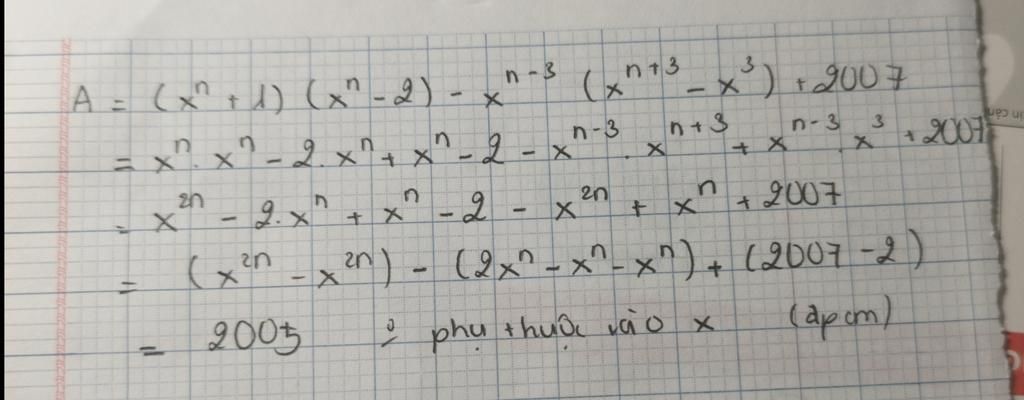 A = (xⁿ + 1) (xⁿ - 2) - xⁿ⁻³ (xⁿ⁺³ - x³) + 2007
= xⁿ. xⁿ - 2. xⁿ + xⁿ - 2 - xⁿ⁻³ . xⁿ⁺³ + xⁿ⁻³. x³ + 2007
= x²ⁿ - 2. xⁿ + xⁿ - 2 - x²ⁿ + xⁿ + 2007
= (x²ⁿ - x²ⁿ) - (2xⁿ - xⁿ - xⁿ) + (2007 - 2)
= 2005 phụ thuộc vào x (đpcm)